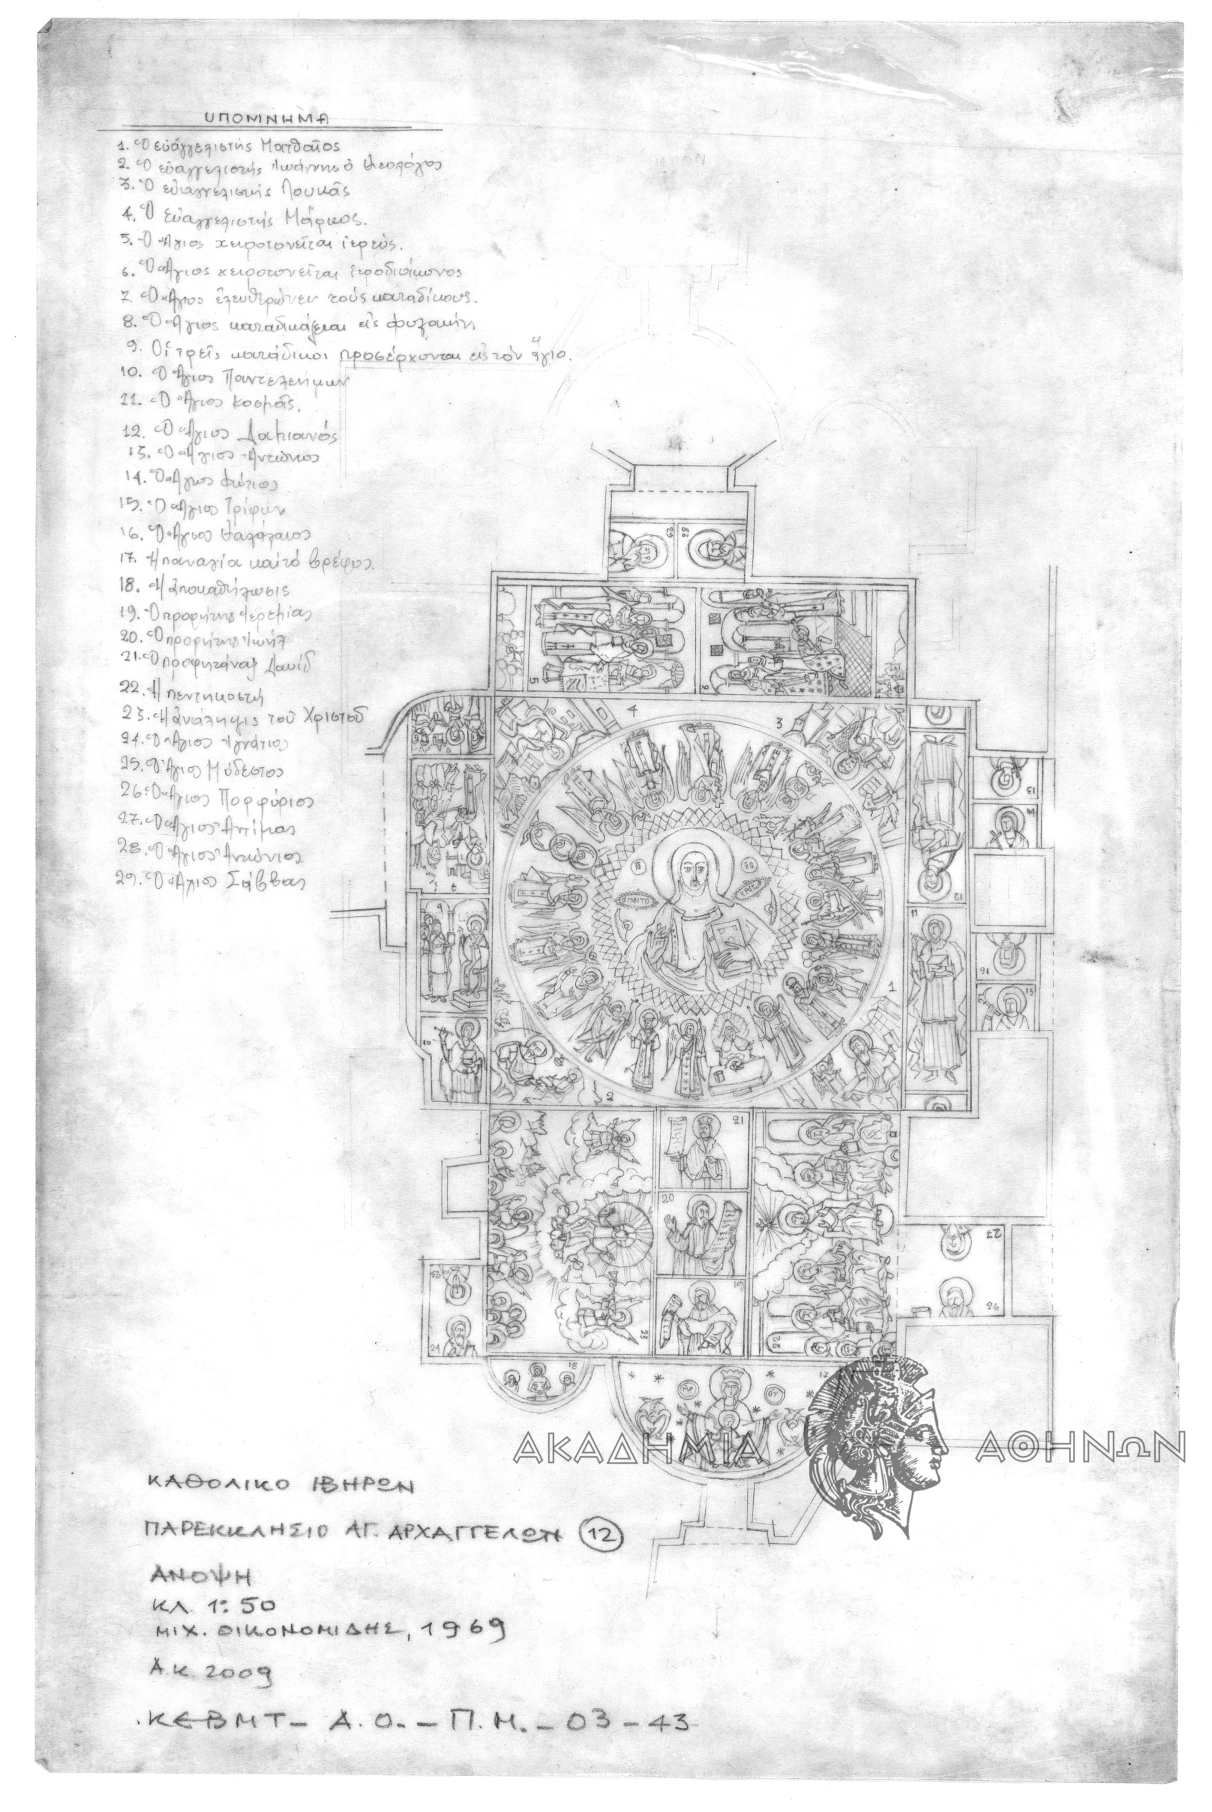 ΥΠΟΜΝΗΜΑ
1. Ὁ εὐάγγελιστής Ματθαῖος
2. Ὁ εὐαγγελιστής Ἰωάννης ὁ Θεολόγος
3. Ὁ εὐαγγελιστής Λουκᾶς
4. Ὁ Εὐαγγελιστής Μᾶρκος.
5. Ὁ Ἅγιος χειροτονεῖται ἱερεύς.
6. Ὁ Ἅγιος χειροτονεῖται
7. Ὁ Ἅγιος ἐλευθερώνει τούς καταδίκους.
8. Ὁ Ἅγιος καταδικάζεται εἰς φυλακήν
9. Οἱ τρεῖς κατάδικοι προσέρχονται εἰς τόν ἅγιο.
10. Ὁ Ἅγιος Παντελεήμων
11. Ὁ Ἅγιος Κοσμᾶς.
12. Ὁ Ἅγιος Δαμιανός
13. Ὁ Ἅγιος Ἀντώνιος
14. Ὁ Ἅγιος Φώτιος
15. Ὁ Ἅγιος Τρίφων
16. Ὁ Ἅγιος Θαλάλαιος
17. Ἡ παναγία καί τό βρέφος.
18. Ἡ Ἀποκαθήλωσις
19. Ὁ προφήτης Ἱερεμίας
20. Ὁ προφήτης Ἰωήλ
21. Ὁ Δαυίδ
22. Ἡ πεντηκοστή
23. Ἡ ἀνάληψις τοῦ Χριστοῦ
24. Ὁ Ἅγιος Ἰγνάτιος
25. Ὁ Ἅγιος Μόδεστος
26. Ὁ Ἅγιος Πορφύριος
27. Ὁ Ἅγιος
28. Ὁ Ἅγιος Ἀντώνιος
29. Ὁ Ἅγιος Σάββας
29 28
5 6
4 3
13
14
7
12
9 11
16
10 15
1
2
21
20
27
26
19
25
24 23 22
18
17
ΑΚΑΔΗΜΙΑ ΑΘΗΝΩΝ
ΚΑΘΟΛΙΚΟ ΙΒΗΡΩΝ
ΠΑΡΕΚΚΛΗΣΙΟ ΑΓ. ΑΡΧΑΓΓΕΛΩΝ 12
ΑΝΟΨΗ
ΚΛ. 1:50
ΜΙΧ. ΟΙΚΟΝΟΜΙΔΗΣ, 1969
Α.Κ. 2009
ΚΕΒΜΤ - Α.Ο. - Π.Μ. - 03 - 43